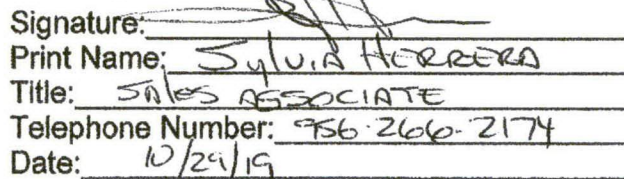 Signature:
Print Name: Sylvia HERRERA
Title: SAles ASSOCIATE
Telephone Number: 956-266-2174
Date: 10/29/19